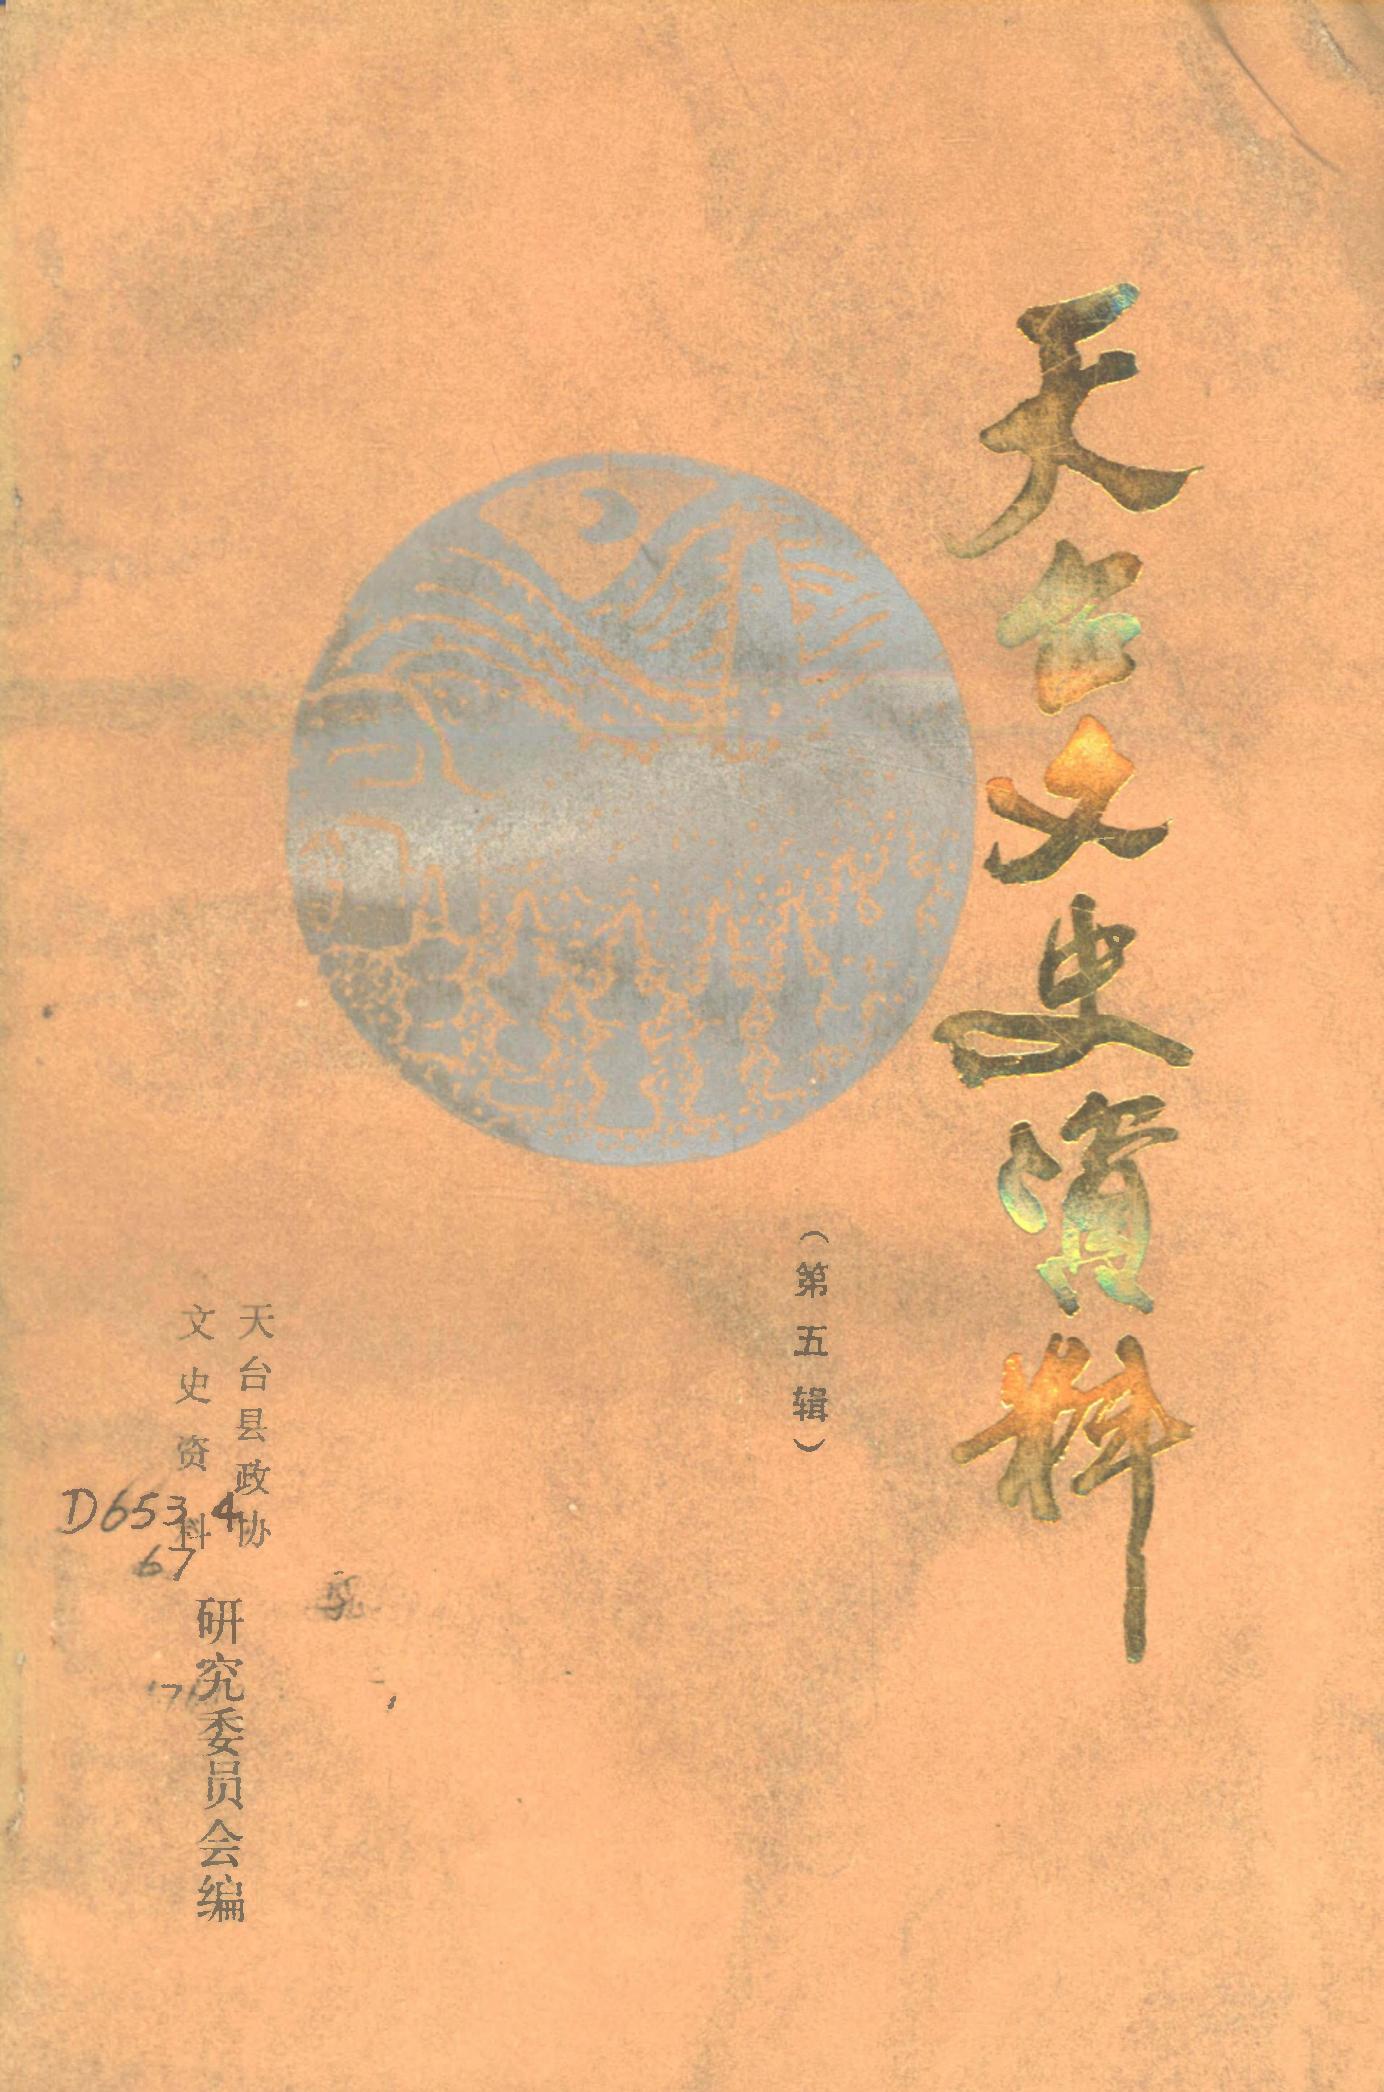 天台文史資料
（第五辑）
天台县政协
文史资料
研究委员会编
D653.4
67